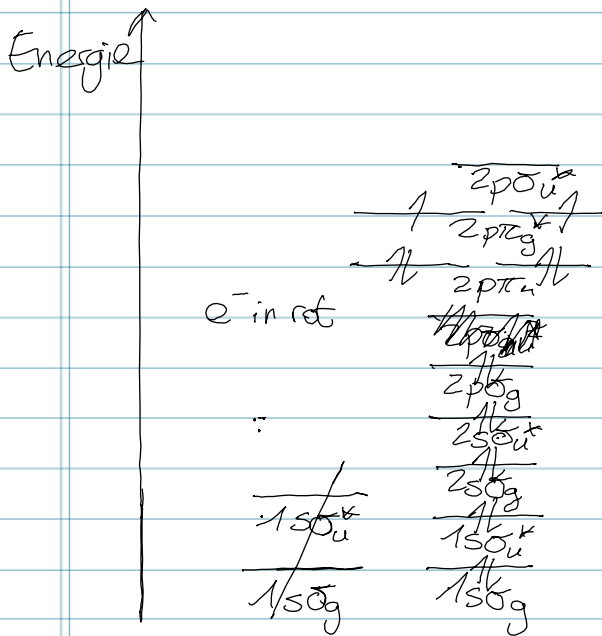 Energie
2pσu*
2pπg*
2pπu
e⁻ in rot
2pσg
2sσu*
2sσg
1sσu*
1sσu*
1sσg
1sσg